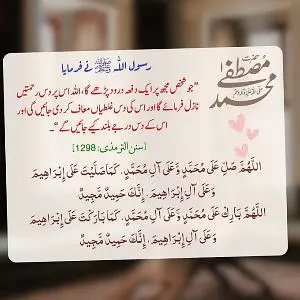 حضرت
محمد مصطفیٰ
رسول اللہ ﷺ نے فرمایا
"جو شخص مجھ پر ایک دفعہ درود پڑھے گا، اللہ اس پر دس رحمتیں
نازل فرمائے گا اور اس کی دس غلطیاں معاف کر دی جائیں گی اور
اس کے دس درجے بلند کیے جائیں گے"۔
[سنن الترمذی: 1298]
اللَّهُمَّ صَلِّ عَلَى مُحَمَّدٍ وَعَلَى آلِ مُحَمَّدٍ، كَمَا صَلَّيْتَ عَلَى إِبْرَاهِيمَ
وَعَلَى آلِ إِبْرَاهِيمَ، إِنَّكَ حَمِيدٌ مَجِيدٌ
اللَّهُمَّ بَارِكْ عَلَى مُحَمَّدٍ وَعَلَى آلِ مُحَمَّدٍ، كَمَا بَارَكْتَ عَلَى إِبْرَاهِيمَ
وَعَلَى آلِ إِبْرَاهِيمَ، إِنَّكَ حَمِيدٌ مَجِيدٌ